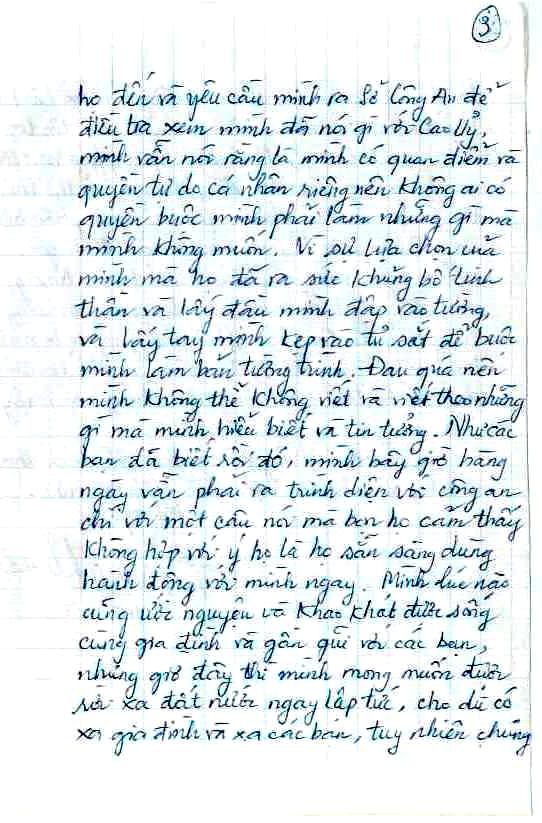 3
họ đến và yêu cầu mình ra Sở Công An để
điều tra xem mình đã nói gì với Cao Uỷ,
mình vẫn nói rằng là mình có quan điểm và
quyền tự do cá nhân riêng nên không ai có
quyền buộc mình phải làm những gì mà
mình không muốn. Vì sự lựa chọn của
mình mà họ đã ra sức khủng bố tinh
thần và lấy đầu mình đập vào tường,
và lấy tay mình kẹp vào tủ sắt để buộc
mình làm bản tường trình. Đau quá nên
mình không thể không viết và viết theo những
gì mà mình hiểu biết và tin tưởng. Như các
bạn đã biết rồi đó, mình bây giờ hàng
ngày vẫn phải ra trình diện với công an
chỉ với một câu nói mà bọn họ cảm thấy
không hợp với ý họ là họ sẵn sàng dùng
hành động với mình ngay. Mình lúc nào
cũng ước nguyện và khao khát được sống
cùng gia đình và gần gũi với các bạn,
nhưng giờ đây thì mình mong muốn được
rời xa đất nước ngay lập tức, cho dù có
xa gia đình và xa các bạn, tuy nhiên chúng